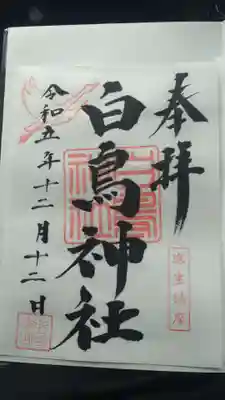 奉拝
白鳥神社
令和五年十二月十二日